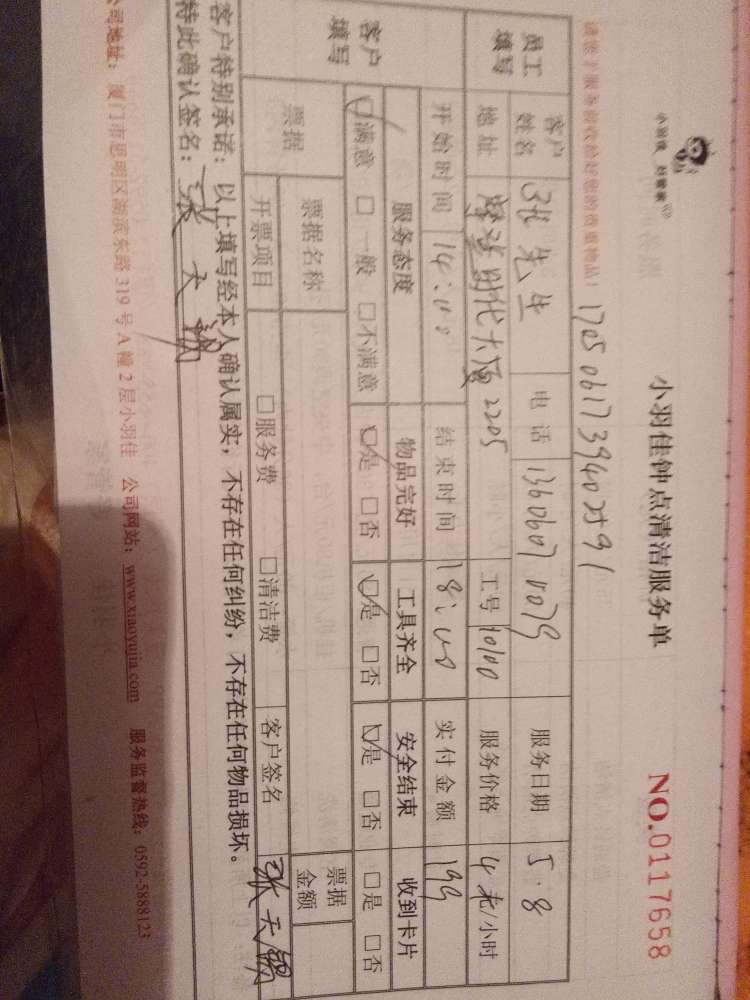 小羽佳钟点清洁服务单
NO.0117658
小羽佳 好管家
客户姓名 张先生 电话 服务日期 5.8
员工填写 地址 时代大厦2205 工号 服务价格 4 /小时
开始时间 14:00 结束时间 18:00 实付金额 199
客户填写 服务态度 物品完好 工具齐全 安全结束 收到卡片
☑满意 □一般 □不满意 ☑是 □否 ☑是 □否 ☑是 □否 □是 □否
票据 票据名称 票据金额
开票项目 □服务费 □清洁费 客户签名
客户特别承诺:以上填写经本人确认属实,不存在任何纠纷,不存在任何物品损坏。
特此确认签名:
公司地址:厦门市思明区湖滨东路319号A幢2层小羽佳 公司网站:www.xiaoyujia.com 服务监督热线:0592-5888123